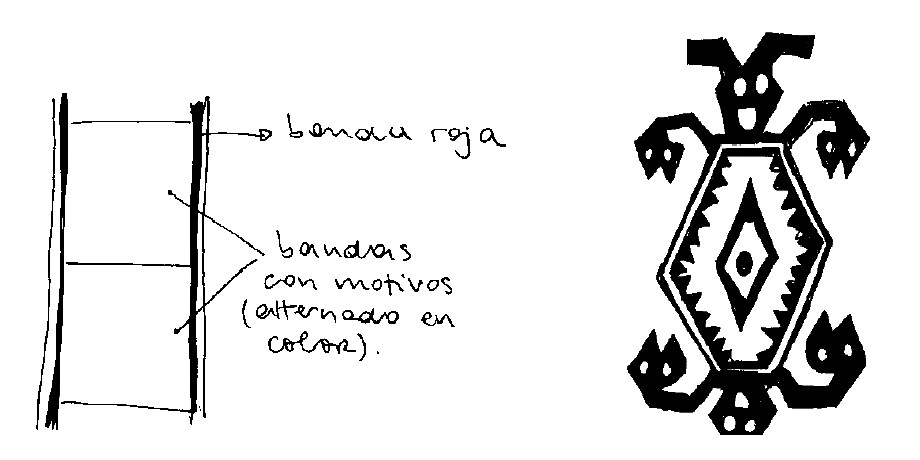 banda roja
bandas
con motivos
(alternado en
color).